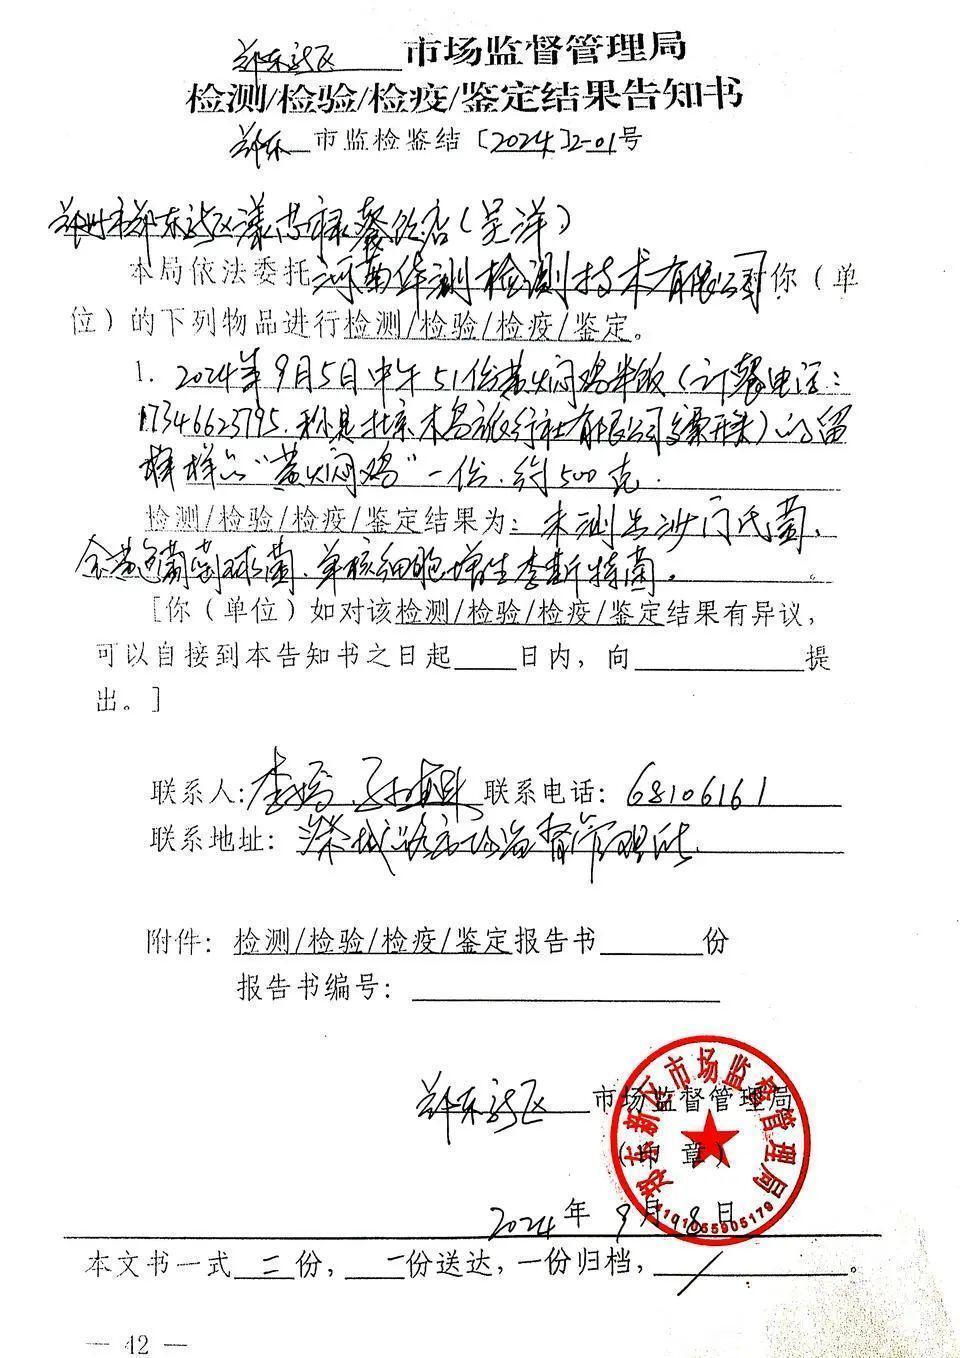 郑东新区 市场监督管理局
检测/检验/检疫/鉴定结果告知书
郑东 市监检鉴结〔2024〕2-01号
郑州市郑东新区漾尚禄餐饮店(吴洋)
本局依法委托河南华测检测技术有限公司对你(单
位)的下列物品进行检测/检验/检疫/鉴定。
1. 2024年9月5日中午51份黄焖鸡米饭(订餐电话:
17346623795.称是北京木鸟旅行社有限公司郑东开来)的留
样样品"黄焖鸡"一份.约500克.
检测/检验/检疫/鉴定结果为:未测出沙门氏菌、
金黄色葡萄球菌、单核细胞增生李斯特菌。
[你(单位)如对该检测/检验/检疫/鉴定结果有异议,
可以自接到本告知书之日起 日内,向 提
出。]
联系人:李 联系电话:68106161
联系地址:祭城路市场监督管理所.
附件:检测/检验/检疫/鉴定报告书 份
报告书编号:
郑东新区 市场监督管理局
(印章)
郑东新区市场监督管理局
4101055905179
2024年9月18日
本文书一式二份,一份送达,一份归档, / 。
— 42 —